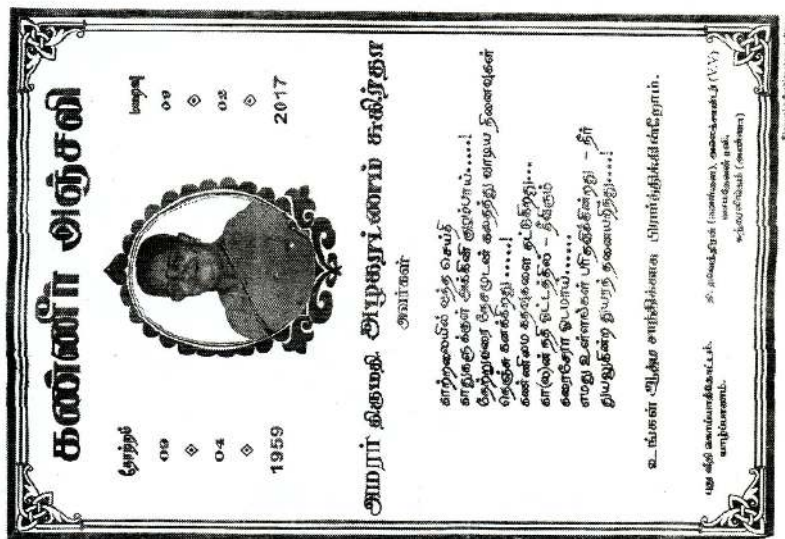 கண்ணீர் அஞ்சலி
தோற்றம்
09
04
1959
மறைவு
09
02
2017
அமரர் திருமதி அழகரட்ணம் சுகிர்தா
அவர்கள்
காற்றலையில் வந்த செய்தி
காதுகளுக்குள் அக்கினி குழம்பாய்.....!
நேற்றுவரை நேசமுடன் கலந்து வாடிய நினைவுகள்
நெஞ்சு கனக்கிறது.....!
கண்ணிமை கதவுகளை தட்டுகிறது...
கா(ல)னதி ஓட்டத்தில் - நீங்களும்
கரைசேரா ஓடமாய்......
எமது உள்ளங்கள் பரிதவிக்கின்றது - நீர்
துயிலுகின்ற துயரந் தனையறிந்து....!
உங்கள் ஆத்ம சாந்திக்காக பிரார்த்திக்கின்றோம்.
புது வீதி கொய்யாத்தோட்டம்,
யாழ்ப்பாணம்.